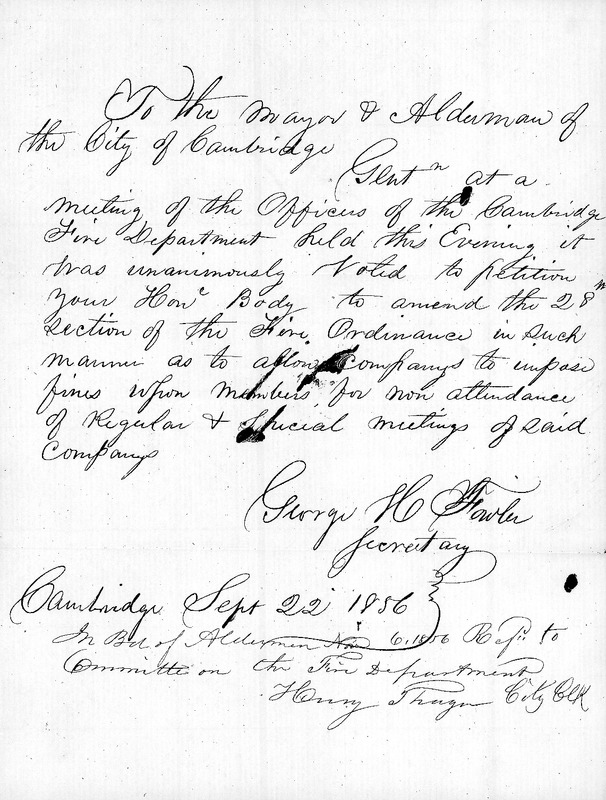 To the Mayor & Alderman of
the City of Cambridge
Gentn at a
meeting of the Officers of the Cambridge
Fire Department held this Evening it
was unanimously Voted to petition
your Honl Body to amend the 28th
section of the Fire Ordinance in such
manner as to allow companys to impose
fines upon members for non attendance
of Regular & Special meetings of said
companys
George H Fowler
Secretary
Cambridge Sept 22 1856
In Bd. of Aldermen Nov 6, 1856 Refd. to
Committee on the Fire Department
Henry Thayer City Clk